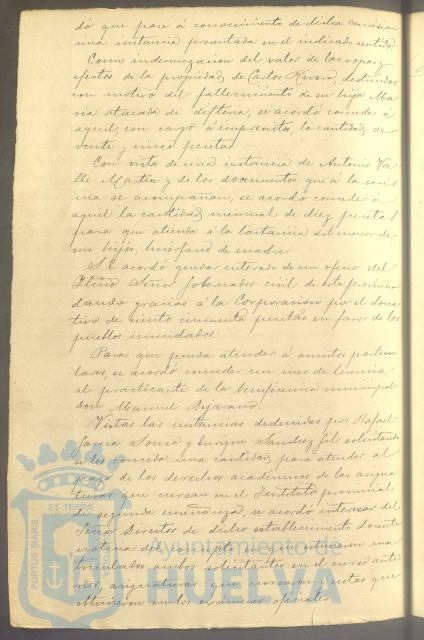 dó que pase á conocimiento de dicha comision
una instancia presentada en el indicado sentido.
Como indemnizacion del valor de las ropas y
efectos de la propiedad de Carlos Rivera destruidos
con motivo del fallecimiento de su hija Ma
ria atacada de difteria, se acordó conceder á
aquel, con cargo á imprevistos, la cantidad de
veinte y cinco pesetas.
Con vista de una instancia de Antonio Va
lle Martin y de los documentos que á la mis
ma se acompañan, se acordó conceder á
aquel la cantidad mensual de diez pesetas
para que atienda á la lactancia del menor de
sus hijos, huerfano de madre.
Se acordó quedar enterado de un oficio del
Iltmo Señor Gobernador civil de esta provincia
dando gracias á la Corporacion por el dona
tivo de ciento cincuenta pesetas en favor de los
pueblos inundados.
Para que pueda atender á asuntos particu
lares, se acordó conceder un mes de licencia
al practicante de la beneficencia municipal
don Manuel Bejarano.
Vistas las instancias deducidas por Rafael
Garcia y Enrique Sanchez Gil solicitando
se les conceda una cantidad para atender al
pago de los derechos académicos de las asigna
turas que cursan en el Instituto provincial
de segunda enseñanza, se acordó interesar del
Señor Director de dicho establecimiento docente
noticia del en que estuvieron ma
triculados ambos solicitantes en el curso ante
rior, asignaturas que cursaron y notas que
obtuvieron en los examenes oficiales
PORTUS MARIS
ET TERRÆ
Ayuntamiento de
HUELVA